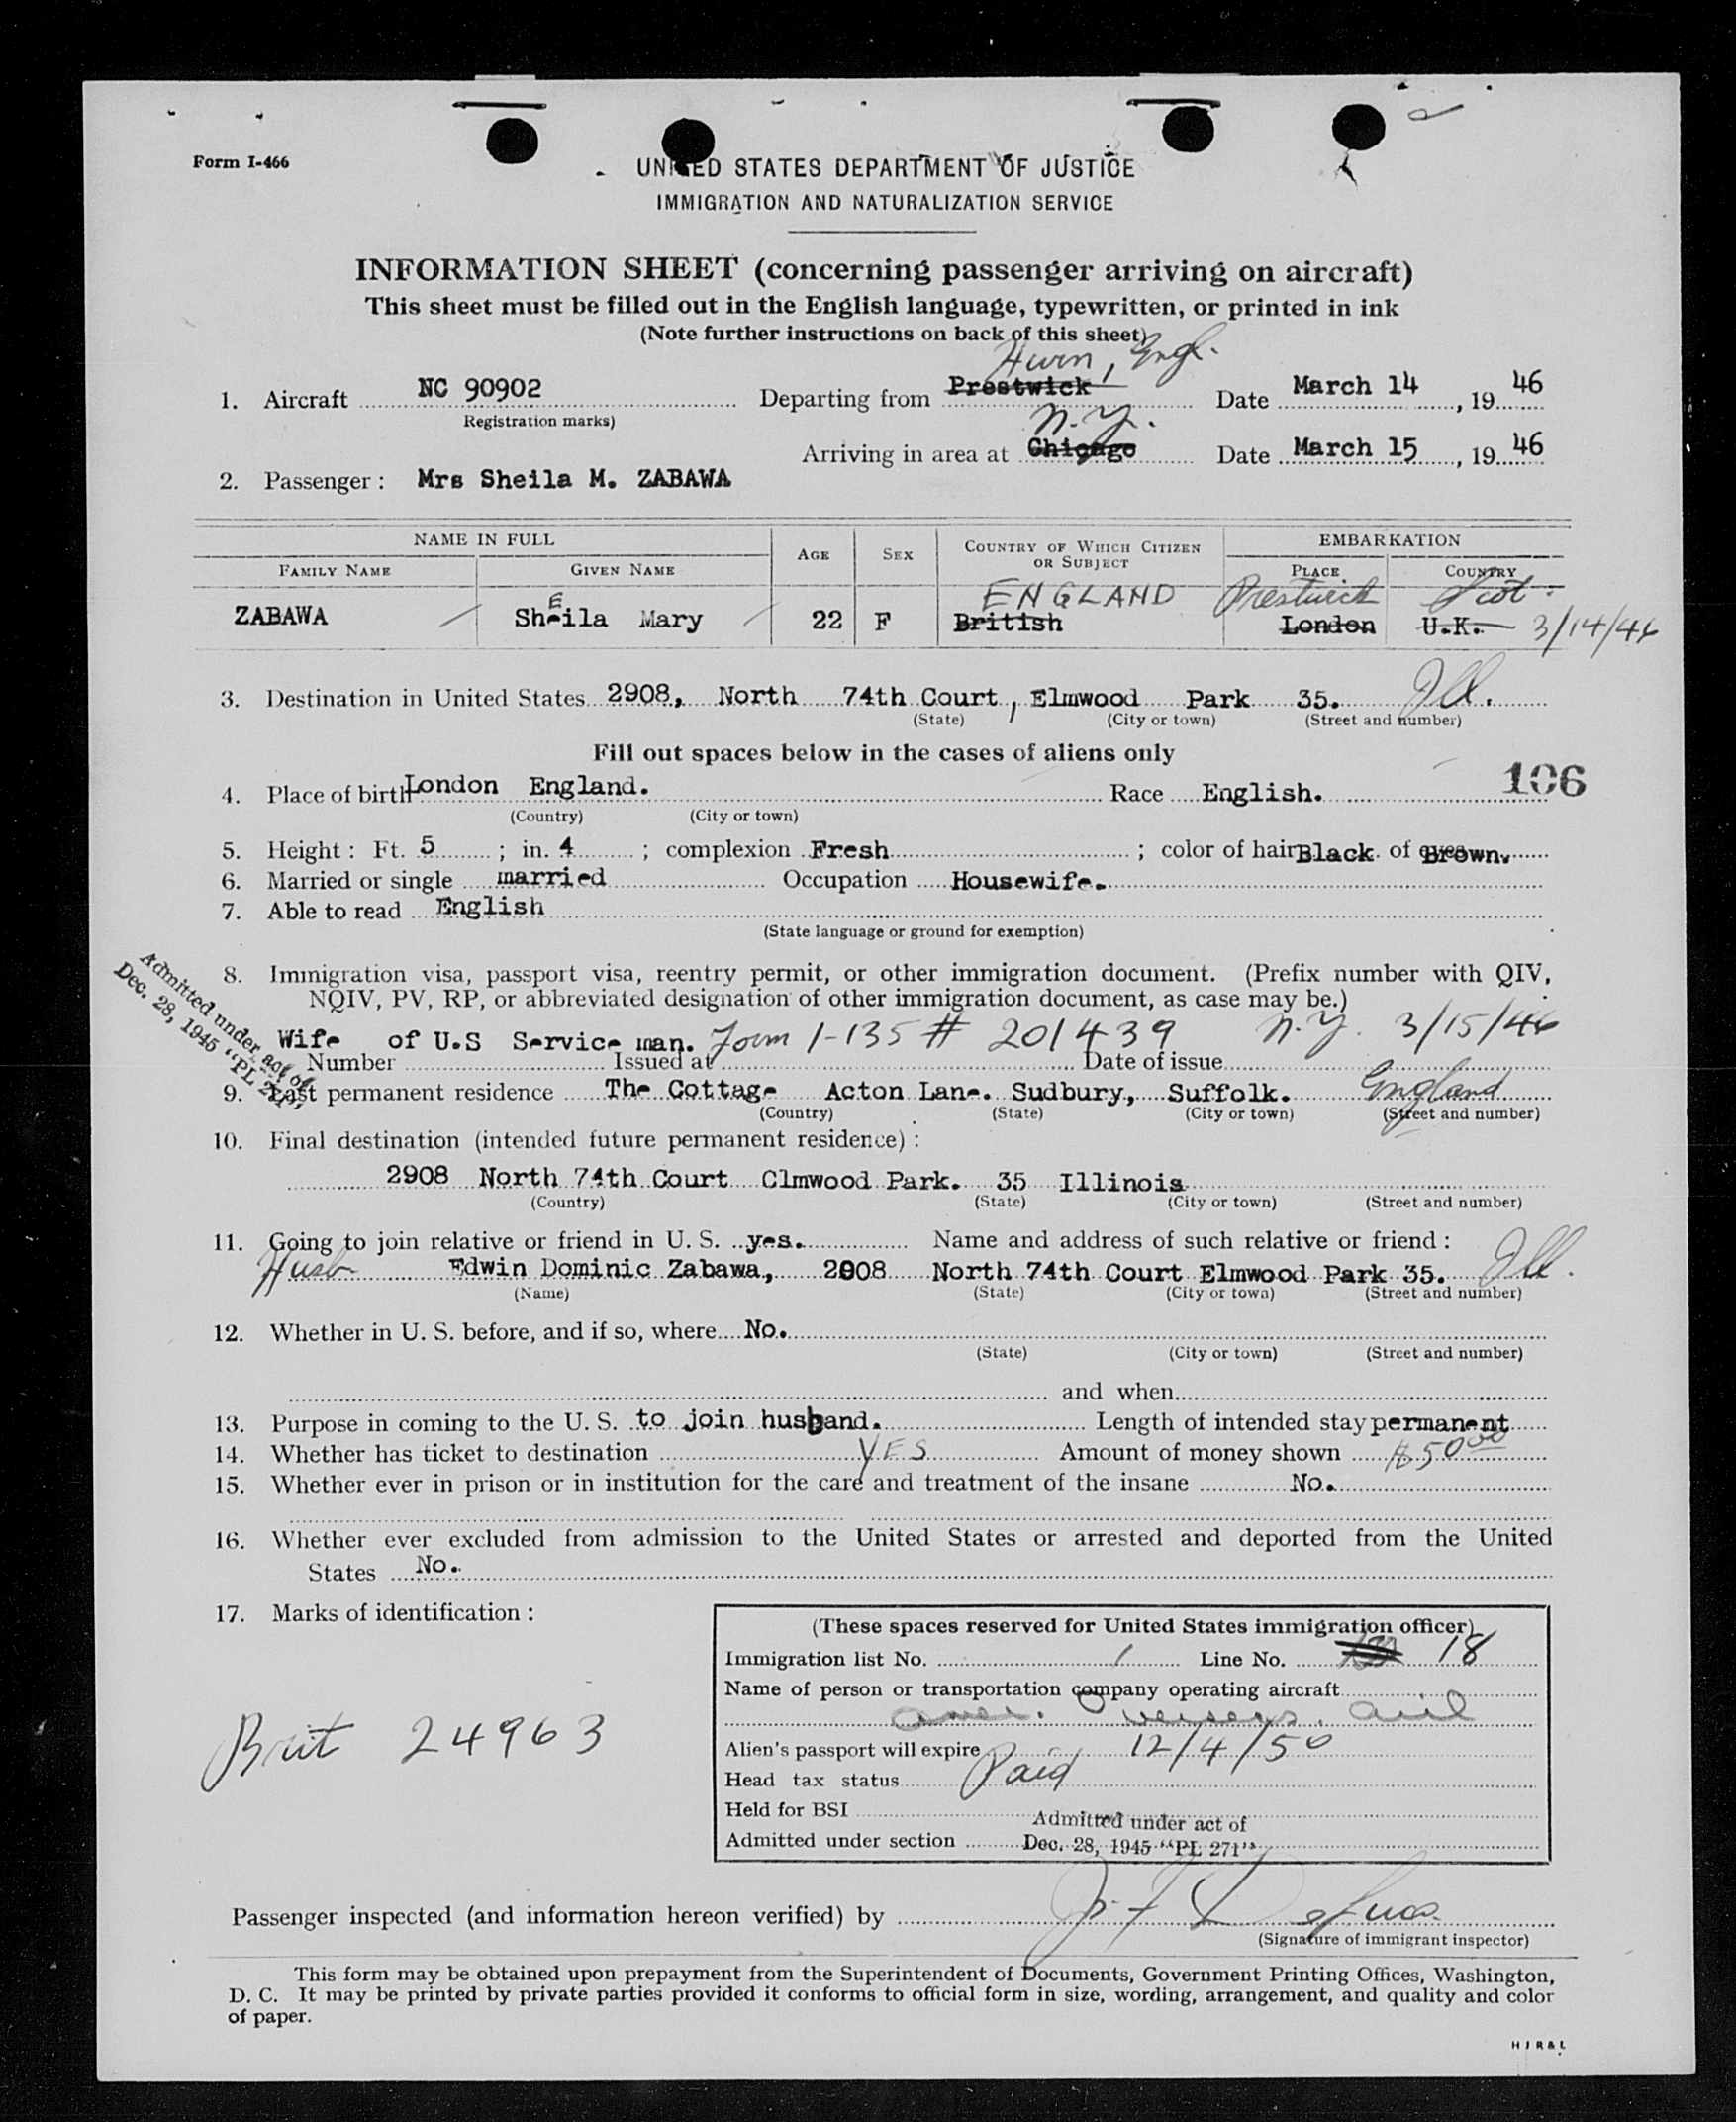 Form I-466
UNITED STATES DEPARTMENT OF JUSTICE
IMMIGRATION AND NATURALIZATION SERVICE
INFORMATION SHEET (concerning passenger arriving on aircraft)
This sheet must be filled out in the English language, typewritten, or printed in ink
(Note further instructions on back of this sheet)
Hurn, Engl.
1. Aircraft NC 90902 Departing from Prestwick Date March 14, 1946
(Registration marks)
N.Y.
Arriving in area at Chicago Date March 15, 1946
2. Passenger: Mrs Sheila M. ZABAWA
NAME IN FULL AGE SEX COUNTRY OF WHICH CITIZEN OR SUBJECT EMBARKATION
FAMILY NAME GIVEN NAME PLACE COUNTRY
E ENGLAND Prestwick Scot.
ZABAWA Sheila Mary 22 F British London U.K. 3/14/46
3. Destination in United States 2908, North 74th Court, Elmwood Park 35. Ill.
(State) (City or town) (Street and number)
Fill out spaces below in the cases of aliens only
106
4. Place of birth London England. Race English.
(Country) (City or town)
5. Height: Ft. 5; in. 4; complexion Fresh; color of hair Black of eyes Brown.
6. Married or single married Occupation Housewife.
7. Able to read English
(State language or ground for exemption)
Admitted under act of
Dec. 28, 1945 "PL 271"
8. Immigration visa, passport visa, reentry permit, or other immigration document. (Prefix number with QIV,
NQIV, PV, RP, or abbreviated designation of other immigration document, as case may be.)
Wife of U.S Service man. Form I-135 # 201439 N.Y. 3/15/46
Number Issued at Date of issue
9. Last permanent residence The Cottage Acton Lane. Sudbury, Suffolk. England
(Country) (State) (City or town) (Street and number)
10. Final destination (intended future permanent residence):
2908 North 74th Court Clmwood Park. 35 Illinois
(Country) (State) (City or town) (Street and number)
11. Going to join relative or friend in U. S. yes. Name and address of such relative or friend:
Husb Edwin Dominic Zabawa, 2908 North 74th Court Elmwood Park 35. Ill.
(Name) (State) (City or town) (Street and number)
12. Whether in U. S. before, and if so, where No.
(State) (City or town) (Street and number)
and when
13. Purpose in coming to the U. S. to join husband. Length of intended stay permanent
14. Whether has ticket to destination YES Amount of money shown $50 00
15. Whether ever in prison or in institution for the care and treatment of the insane No.
16. Whether ever excluded from admission to the United States or arrested and deported from the United
States No.
17. Marks of identification:
Brit 24963
(These spaces reserved for United States immigration officer)
Immigration list No. 1 Line No. 18
Name of person or transportation company operating aircraft
Amer. Overseas. Airl
Alien's passport will expire 12/4/50
Head tax status Paid
Held for BSI
Admitted under section Admitted under act of
Dec. 28, 1945 "PL 271"
Passenger inspected (and information hereon verified) by
(Signature of immigrant inspector)
This form may be obtained upon prepayment from the Superintendent of Documents, Government Printing Offices, Washington,
D. C. It may be printed by private parties provided it conforms to official form in size, wording, arrangement, and quality and color
of paper.
H J R & L